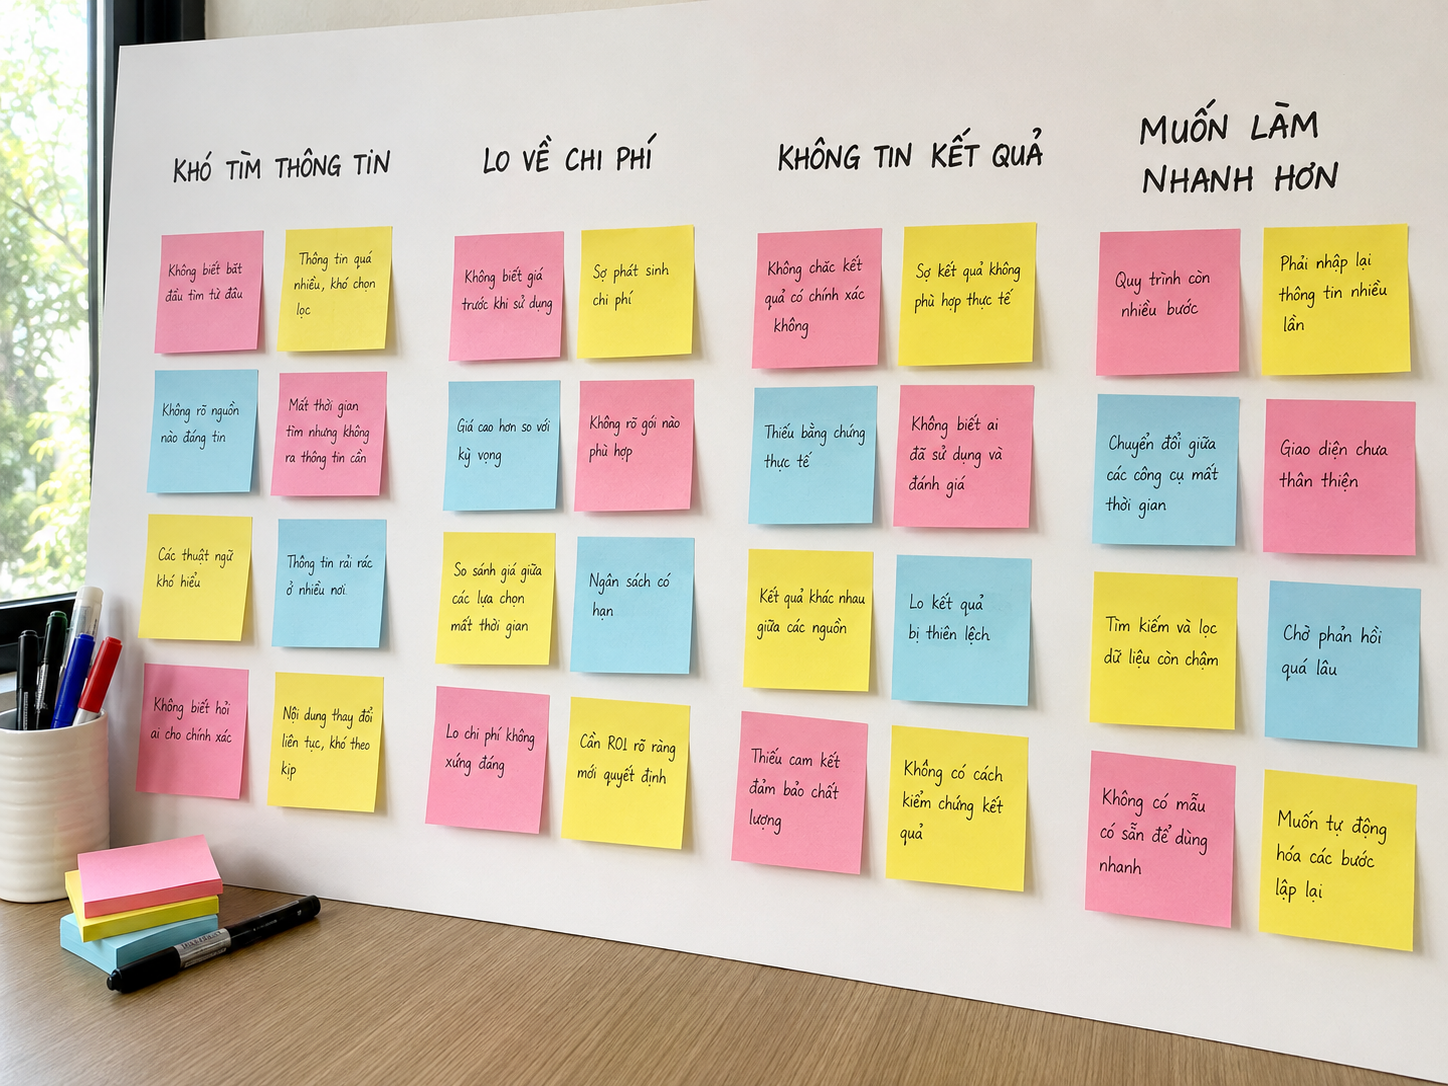 KHÓ TÌM THÔNG TIN
Không biết bắt
đầu tìm từ đâu
Thông tin quá
nhiều, khó chọn
lọc
Không rõ nguồn
nào đáng tin
Mất thời gian
tìm nhưng không
ra thông tin cần
Các thuật ngữ
khó hiểu
Thông tin rải rác
ở nhiều nơi.
Không biết hỏi
ai cho chính xác
Nội dung thay đổi
liên tục, khó theo
kịp
LO VỀ CHI PHÍ
Không biết giá
trước khi sử dụng
Sợ phát sinh
chi phí
Giá cao hơn so với
kỳ vọng
Không rõ gói nào
phù hợp
So sánh giá giữa
các lựa chọn
mất thời gian
Ngân sách có
hạn
Lo chi phí không
xứng đáng
Cần ROI rõ ràng
mới quyết định
KHÔNG TIN KẾT QUẢ
Không chắc kết
quả có chính xác
không
Sợ kết quả không
phù hợp thực tế
Thiếu bằng chứng
thực tế
Không biết ai
đã sử dụng và
đánh giá
Kết quả khác nhau
giữa các nguồn
Lo kết quả
bị thiên lệch
Thiếu cam kết
đảm bảo chất
lượng
Không có cách
kiểm chứng kết
quả
MUỐN LÀM
NHANH HƠN
Quy trình còn
nhiều bước
Phải nhập lại
thông tin nhiều
lần
Chuyển đổi giữa
các công cụ mất
thời gian
Giao diện chưa
thân thiện
Tìm kiếm và lọc
dữ liệu còn chậm
Chờ phản hồi
quá lâu
Không có mẫu
có sẵn để dùng
nhanh
Muốn tự động
hóa các bước
lặp lại